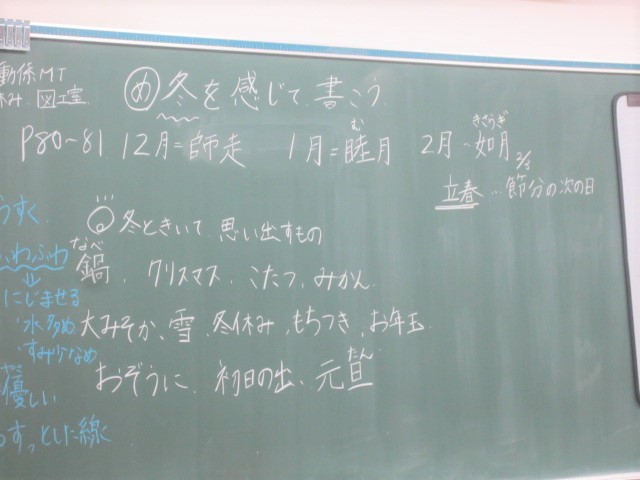 動係MT
休み 図工室
め 冬を感じて書こう
P80~81 12月=師走 1月=睦月 2月・如月 2/3
む
きさらぎ
立春…節分の次の日
冬ときいて思い出すもの
なべ
鍋、クリスマス、こたつ、みかん
大みそか、雪、冬休み、もちつき、お年玉
おぞうに、初日の出、元旦
たん
うすく
ふわふわ
にじませる
水多め
すみ少なめ
優しい
すっとした線く